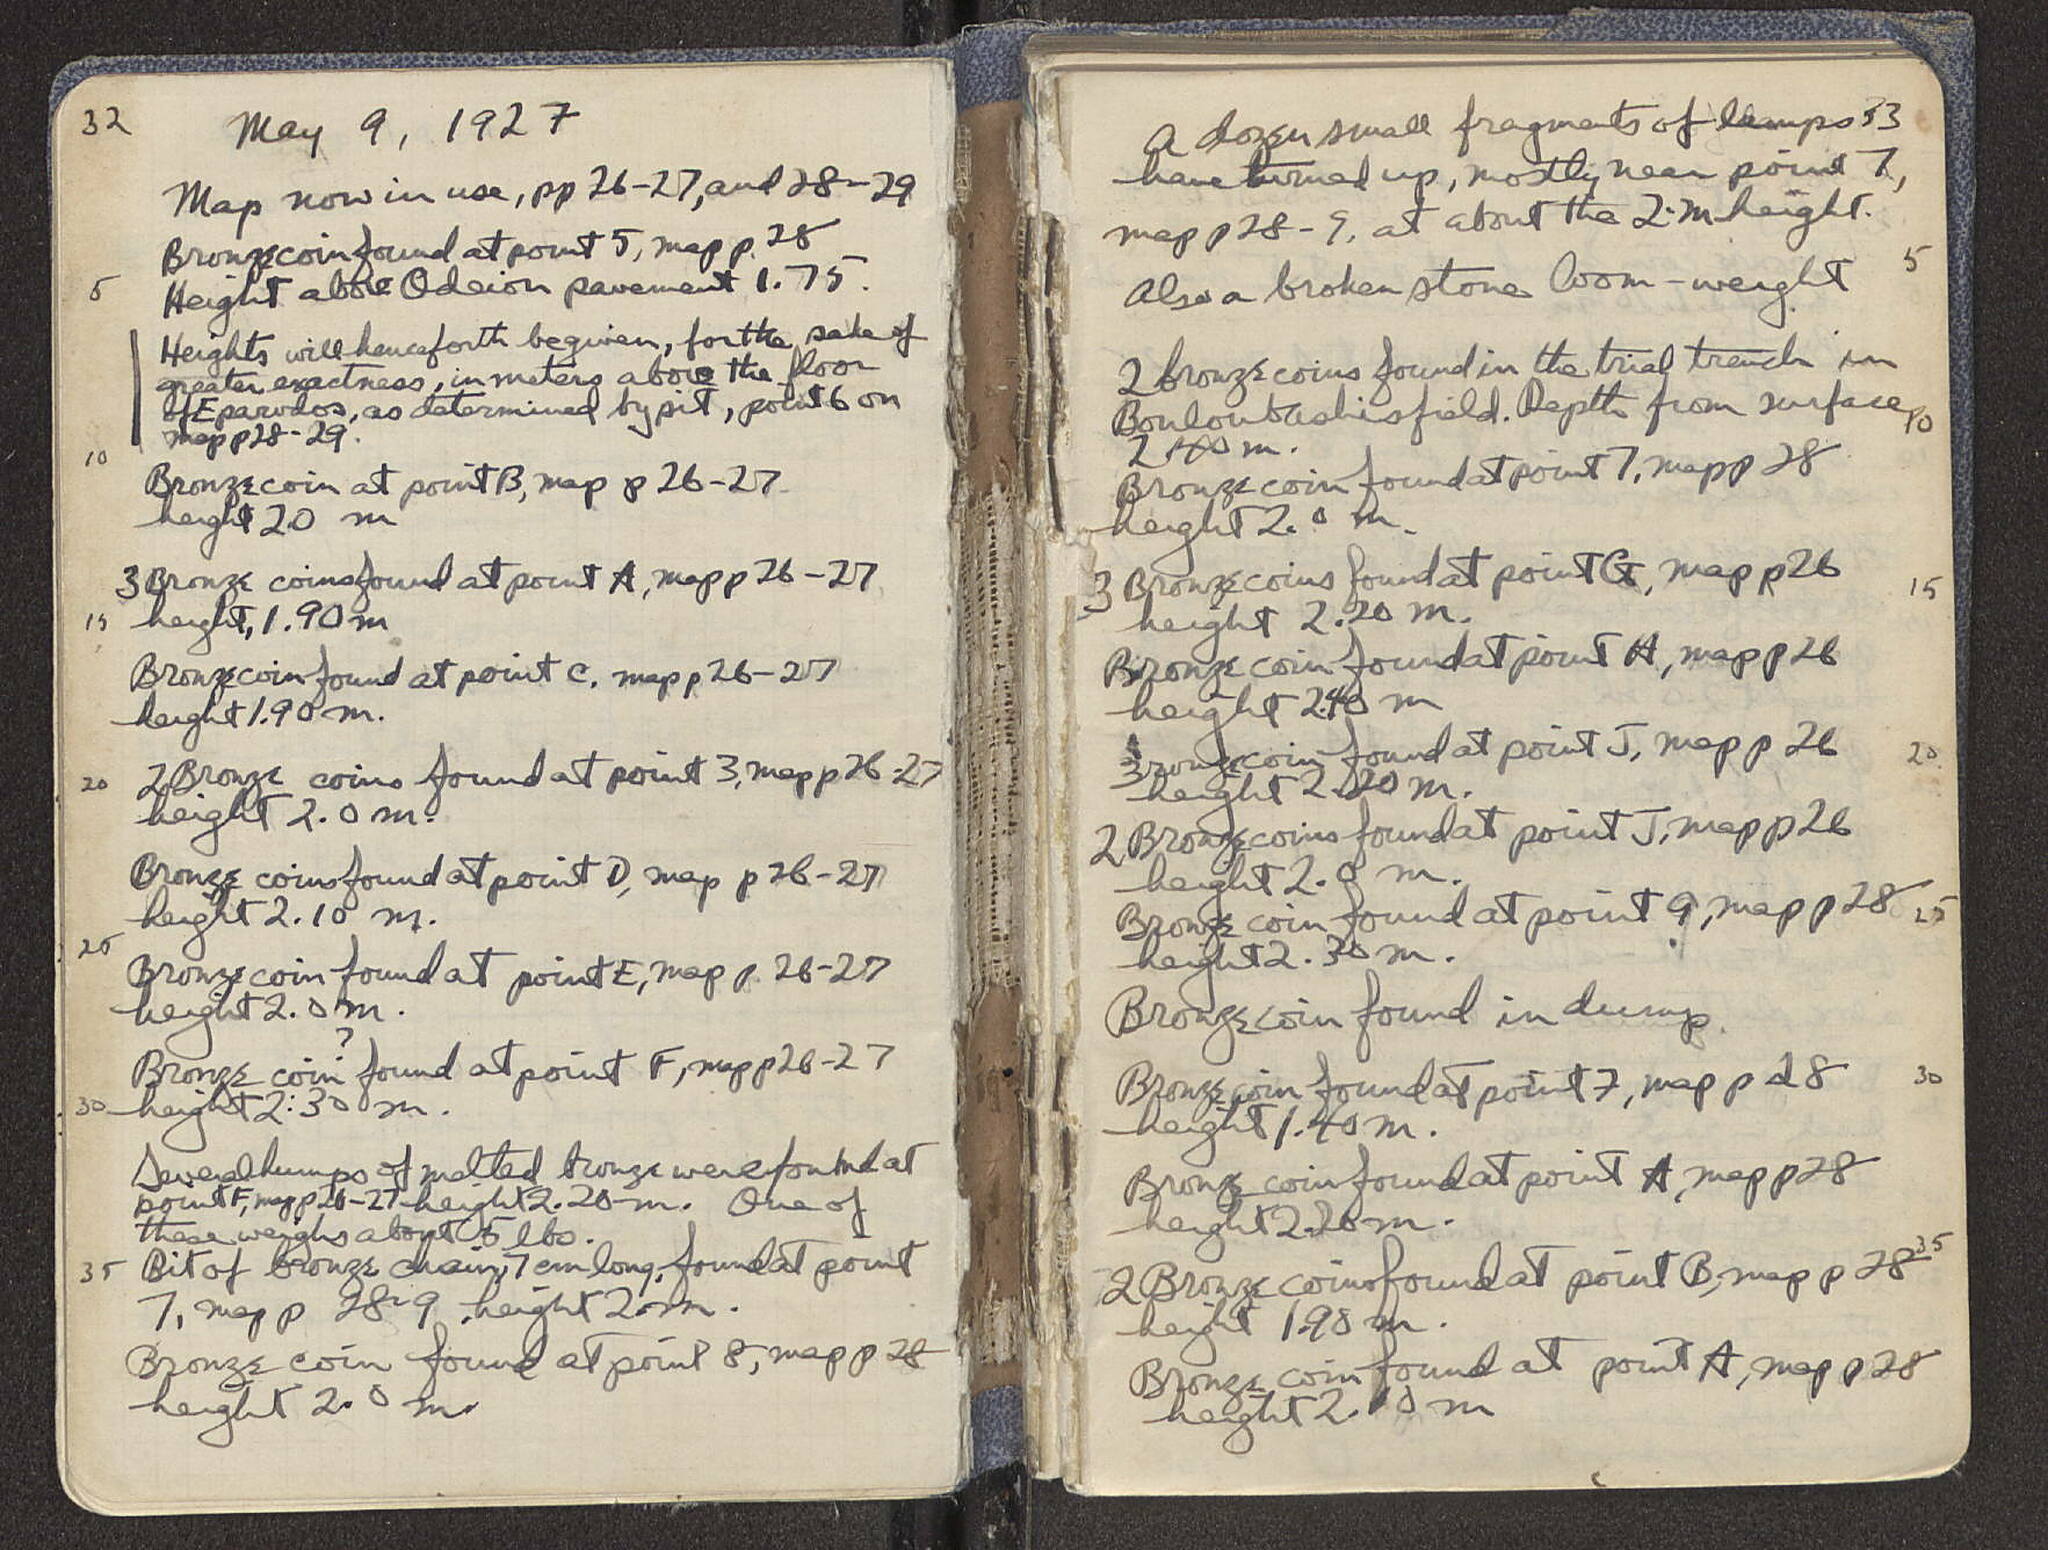 32
May 9, 1927
Map now in use, pp 26-27, and 28-29
Bronze coin found at point 5, map p. 28
5 Height above Odeion pavement 1.75.
Heights will henceforth be given, for the sake of
greater exactness, in meters above the floor
of E parodos, as determined by pit, point 6 on
map p 28-29.
10 Bronze coin at point B, map p 26-27
height 20 m
3 Bronze coins found at point A, map p 26-27
15 height, 1.90 m
Bronze coin found at point C. map p 26-27
height 1.90 m.
20 2 Bronze coins found at point 3, map p 26-27
height 2.0 m.
Bronze coins found at point D, map p 26-27
height 2.10 m.
25 Bronze coin found at point E, map p. 26-27
height 2.0 m.
?
Bronze coin found at point F, map p 26-27
30 height 2.30 m.
Several lumps of melted bronze were found at
point F, map p 26-27 height 2.20 m. One of
these weighs about 5 lbs.
35 Bit of bronze chain, 7 cm long, found at point
7, map p 28-9, height 2. m.
Bronze coin found at point 8, map p 28
height 2.0 m.
A dozen small fragments of lamps 33
have turned up, mostly near point 7,
map p 28-9, at about the 2. m height.
5
Also a broken stone loom-weight
2 bronze coins found in the trial trench in
Bouloubashis field. Depth from surface, 10
2.40 m.
Bronze coin found at point 7, map p 28
height 2.0 m.
3 Bronze coins found at point G, map p 26 15
height 2.20 m.
Bronze coin found at point H, map p 26
height 2.40 m
Bronze coin found at point J, map p 26 20
height 2.20 m.
2 Bronze coins found at point J, map p 26
height 2.0 m.
Bronze coin found at point 9, map p 28 25
height 2.30 m.
Bronze coin found in dump.
Bronze coin found at point 7, map p 28 30
height 1.40 m.
Bronze coin found at point A, map p 28
height 2.20 m.
2 Bronze coins found at point B, map p 28 35
height 1.90 m.
Bronze coin found at point A, map p 28
height 2.10 m